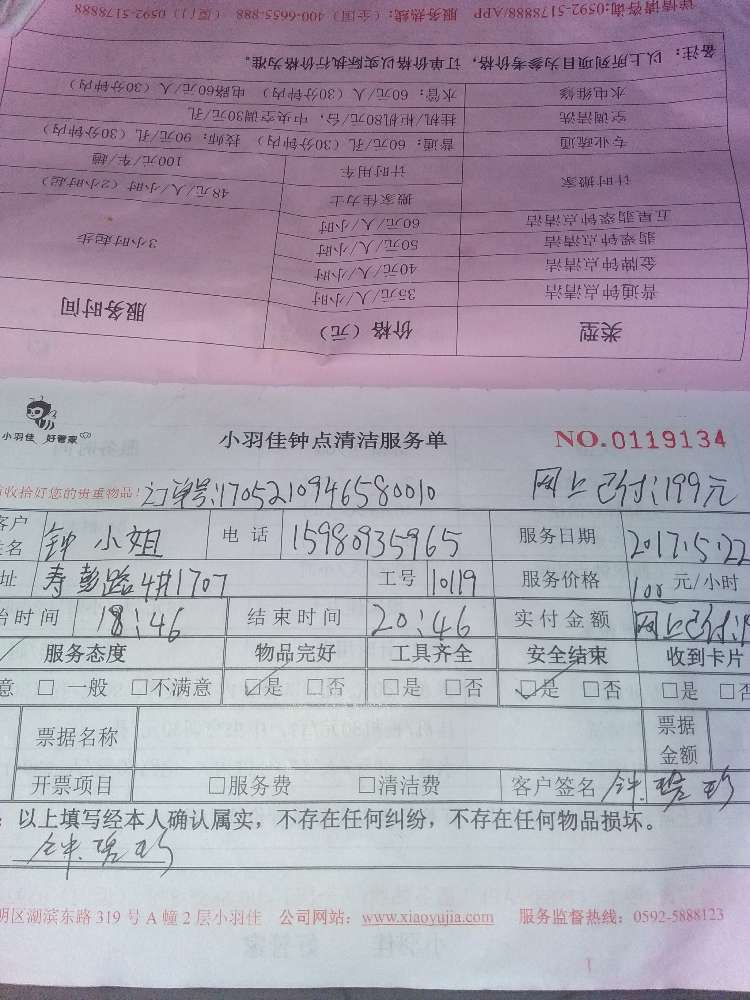 详情请咨询:0592-5178888/APP 服务热线:(全国)400-6655-888 (厦门)0592-5178888
备注:以上所列项目为参考价格,订单价格以实际执行价格为准。
水电维修 水管:60元/人(30分钟内) 电路60元/人(30分钟内)
空调清洗 挂机/柜机80元/台,中央空调30元/孔
专业疏通 普通:60元/孔(30分钟内) 技师:90元/孔(30分钟内)
计时搬家 计时用车 100元/车/趟
搬家佳力士 48元/人/小时(2小时起)
五星翡翠钟点清洁 60元/人/小时
翡翠钟点清洁 50元/人/小时 3小时起步
金牌钟点清洁 40元/人/小时
普通钟点清洁 35元/人/小时
类型 价格(元) 服务时间
小羽佳 好管家
小羽佳钟点清洁服务单 NO.0119134
收拾好您的贵重物品! 订单号:1705210946580010 网上已付:199元
客户姓名 钟小姐 电话 15980935965 服务日期 2017.5.22
址 寿彭路4#1707 工号 10119 服务价格 100元/小时
时间 18:46 结束时间 20:46 实付金额 网上已付
服务态度 物品完好 工具齐全 安全结束 收到卡片
意 □一般 □不满意 ☑是 □否 □是 □否 ☑是 □否 □是 □否
票据名称 票据金额
开票项目 □服务费 □清洁费 客户签名
:以上填写经本人确认属实,不存在任何纠纷,不存在任何物品损坏。
明区湖滨东路319号A幢2层小羽佳 公司网站:www.xiaoyujia.com 服务监督热线:0592-5888123